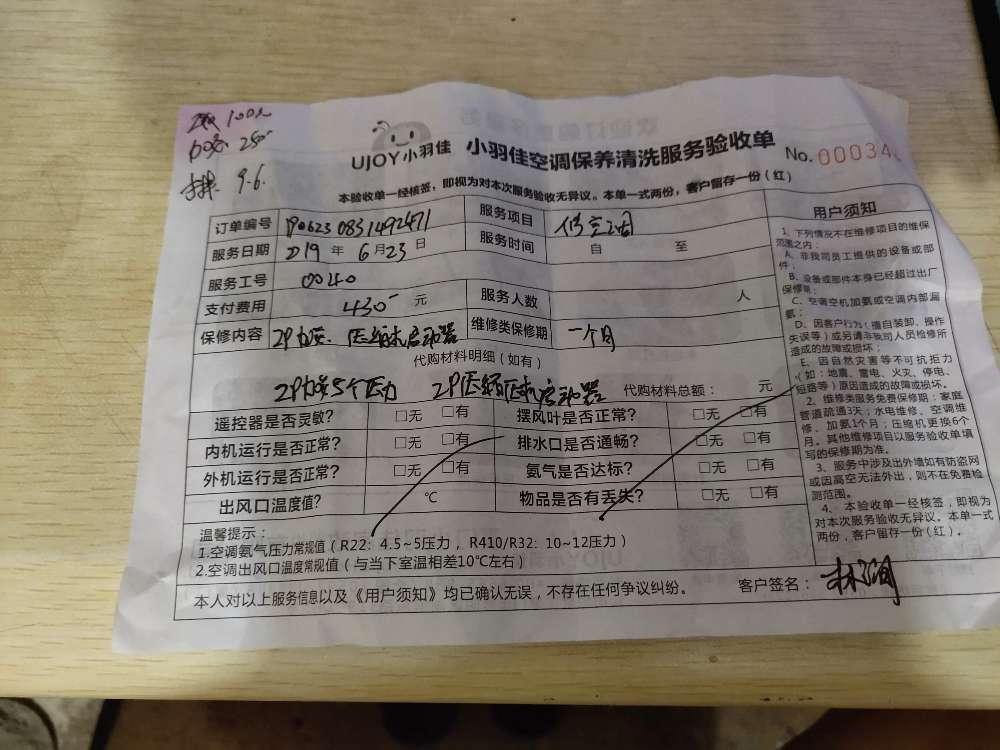 100元
250
9.6.
UJOY小羽佳 小羽佳空调保养清洗服务验收单 No.00034
本验收单一经核签,即视为对本次服务验收无异议。本单一式两份,客户留存一份(红)
订单编号 190623 0831492471 服务项目 修空调
服务日期 2019 年 6 月 23 日 服务时间 自 至
服务工号 0040
支付费用 430 元 服务人数 人
保修内容 2P加 启动器 维修类保修期 一个月
代购材料明细(如有)
2P加 5个压力 2P 启动器 代购材料总额: 元
遥控器是否灵敏? □无 □有 摆风叶是否正常? □无 □有
内机运行是否正常? □无 □有 排水口是否通畅? □无 □有
外机运行是否正常? □无 □有 氨气是否达标? □无 □有
出风口温度值? ℃ 物品是否有丢失? □无 □有
温馨提示:
1.空调氨气压力常规值(R22:4.5~5压力,R410/R32:10~12压力)
2.空调出风口温度常规值(与当下室温相差10℃左右)
本人对以上服务信息以及《用户须知》均已确认无误,不存在任何争议纠纷。 客户签名:
用户须知
1、下列情况不在维修项目的维保
范围之内:
A、非我司员工提供的设备或部
件;
B、设备或部件本身已经超过出厂
保修期;
C、空调空机加氨或空调内部漏
氨;
D、因客户行为(擅自装卸、操作
失误等)或另请非我司人员检修所
造成的故障或损坏;
E、因自然灾害等不可抗拒力
(如:地震、雷电、火灾、停电、
短路等)原因造成的故障或损坏。
2、维修类服务免费保修期:家庭
管道疏通3天;水电维修、空调维
修、加氨1个月;压缩机更换6个
月。其他维修项目以服务验收单填
写的保修期为准。
3、服务中涉及出外墙如有防盗网
或因高空无法外出,则不在免费检
测范围。
4、本验收单一经核签,即视为
对本次服务验收无异议。本单一式
两份,客户留存一份(红)。